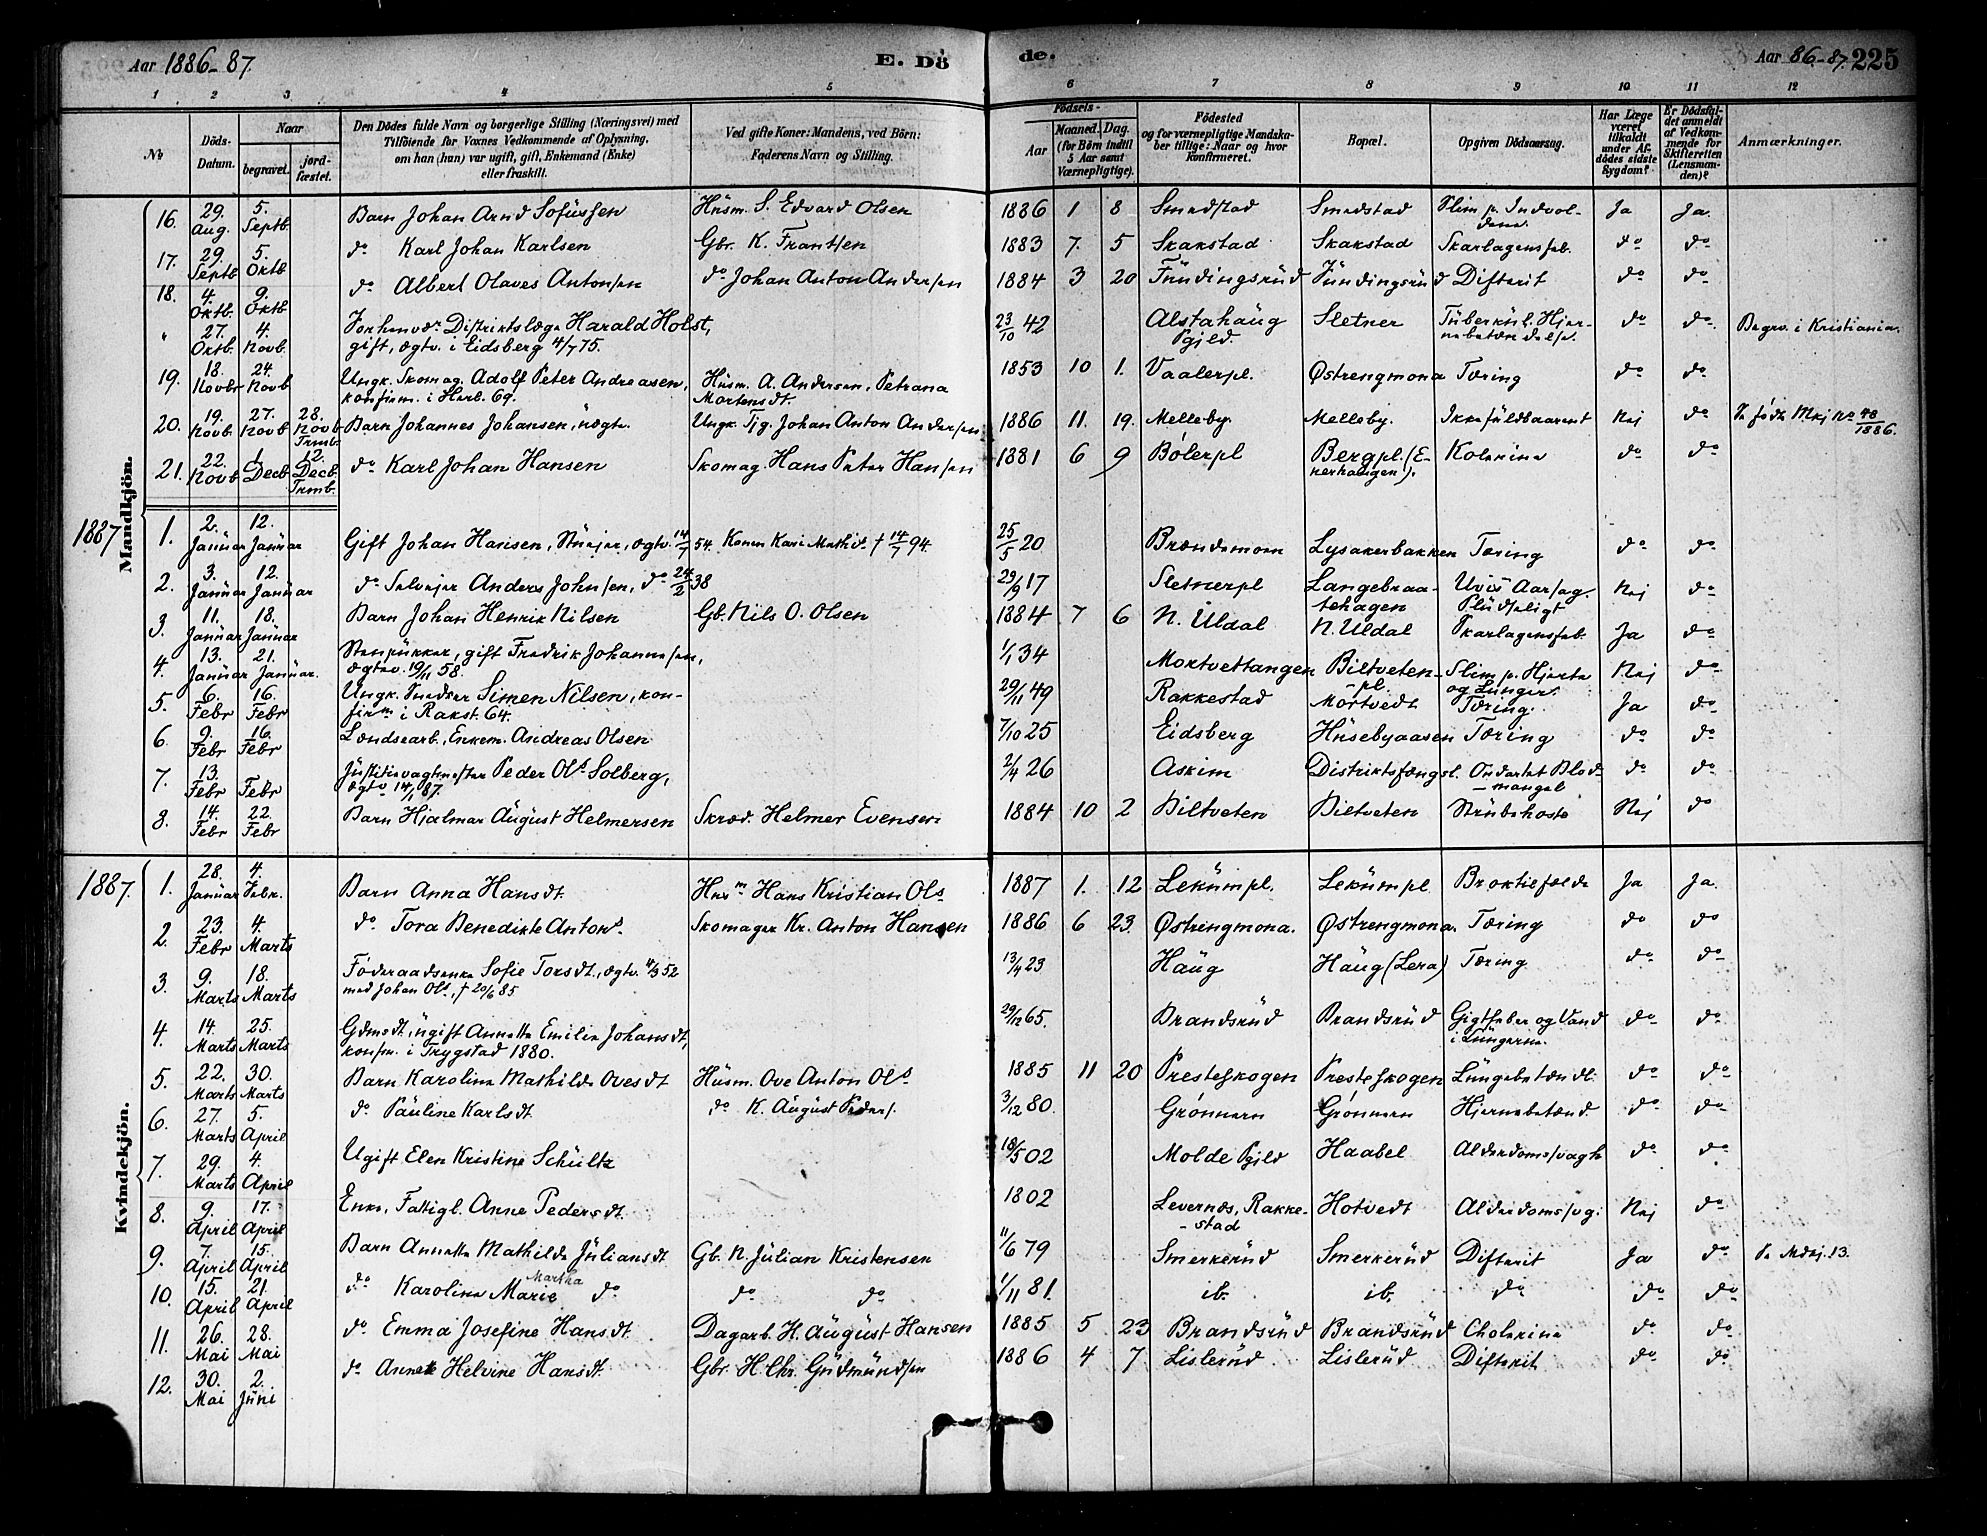 Aar 1886-87.
E. Dö
de.
Aar 86-87. 225
1 2 3 4 5 6 7 8 9 10 11 12
No
Döds-Datum.
Naar
begravet.
jord-fæstet.
Den Dödes fulde Navn og borgerlige Stilling (Næringsvei) med
Tilföiende for Voxnes Vedkommende af Oplysning,
om han (hun) var ugift, gift, Enkemand (Enke)
eller fraskilt.
Ved gifte Koner: Mandens, ved Börn:
Faderens Navn og Stilling.
Födsels-
Aar
Maaned. Dag.
(for Börn indtil
5 Aar samt
Værnepligtige).
Födested
og for værnepligtige Mandska-
ber tillige: Naar og hvor
konfirmeret.
Bopæl.
Opgiven Dödsaarsag.
Har Læge
været
tilkaldt
under Af-
dödes sidste
Sygdom?
Er Dödsfal-
det anmeldt
af Vedkom-
mende for
Skifteretten
(Lensman-
den)?
Anmærkninger.
Mandkjön.
16. 29. Aug. 5. Septb. Barn Johan Arnd Sofussen Husm. S. Edvard Olsen 1886 1 8 Smedstad Smedstad Slim p. Indvol-dene. Ja Ja.
17. 29. Septb 5. Oktb do Karl Johan Karlsen Gbr. K. Frantsen 1883 7. 5 Skakstad Skakstad Skarlagensfeb. do do
18. 4. Oktb. 9. Oktb do Albert Olaves Antonsen do Johan Anton Andersen 1884 3 20 Fundingsrud Fundingsrud Difterit do do
" 27. Oktb. 4. Novb. Forhenvær. Distriktslæge Harald Holst,
gift, ægtv. i Eidsberg 4/7 75. 23/10 42 Alstahaug Pgjld. Sletner Tuberkul. Hjer-nebetændelse. do do. Begrv. i Kristiania.
19. 18. Novbr 24. Novb Ungk. Skomag. Adolf Peter Andreasen,
konfirm. i Herl. 69. Husm. A. Andersen, Petrana Mortensdt. 1853 10 1. Vaalerpl. Østrengmona Tæring do do.
20. 19. Novb. 27. Novb 28. Novb Trmb. Barn Johannes Johansen, uægte. Ungk. Tjg. Johan Anton Andersen 1886 11. 19. Melleby. Melleby. Ikke fuldbaarent Nej do Se fødte Mkj No 48/1886.
21. 22. Novb 1. Decb 12. Decb. Trmb. do Karl Johan Hansen Skomag. Hans Peter Hansen 1881 6 9 Bølerpl Bergpl. (E-nerhaugen). Kolerine do do
1887
1. 2. Januar 12. Januar Gift Johan Hansen, ægtv. 14/7 54. Konen Kari Mathisd. † 14/7 94. 25/5 20 Brændemoen Lysakerbakken Tæring do do
2. 3. Januar 12. Januar do Selveier Anders Johnsen, do 24/2 38 29/9 17 Sletnerpl Langebraa-tehagen Uvis Aarsag. Pludseligt Nej do
3. 11. Januar 18. Januar Barn Johan Henrik Nilsen Gb. Nils O. Olsen 1884 7 6 N. Uldal N. Uldal Skarlagensfeb. Ja do
4. 13. Januar 21. Januar. Stenpukker, gift Fredrik Johannesen,
ægtev. 19/11 58. 1/1 34 Mortvettangen Biltveten-pl. Slim p. Hjerte og Lunger. Nej do
5. 6. Febr 16. Febr Ungk. Simen Nilsen, kon-
firm i Rakst. 64. 29/11 49 Rakkestad Mortvedt Tæring. Ja do
6. 9. Febr 16. Febr Landsearb., Enkem. Andreas Olsen 7/10 25 Eidsberg Husebyaasen Tæring do do
7. 13. Febr Febr Justitsvagtmester Peder Ols Solberg,
ægtv 14/1 87. 2/4 26 Askim Distriktsfængsl. Ondartet Blod-mangel do do
8. 14. Febr 22. Febr Barn Hjalmar August Helmersen Skræd. Helmer Evensen 1884 10 2 Biltveten Biltveten Strubehoste Nej do
Kvindekjön.
1887.
1. 28. Januar 4. Febr. Barn Anna Hansdt. Husm Hans Kristian Ols 1887 1. 12 Lekumpl. Lekumpl. Braktilfælde Ja Ja.
2. 23. Febr 4. Marts do Tora Benedikte Antons. Skomager Kr. Anton Hansen 1886 6 23. Østrengmona. Østrengmona. Tæring do do
3. 9. Marts 18. Marts Føderaadsenke Sofie Torsdt., ægtv. 4/3 52
med Johan Ols. † 20/6 85 13/4 23 Haug Haug (Lera) Tæring do do
4. 14. Marts 25. Marts Gdmsdt. ugift Annette Emilie Johansdt,
konfm. i Trygstad 1880. 29/12 65. Brandsrud Brandsrud Gigtfeber og Vand i Lungerne. do do
5. 22. Marts 30. Marts Barn Karoline Mathilde Ovesdt Husm. Ove Anton Ols 1885 11 20 Presteskogen Presteskogen Lungebetændl. do do
6. 27. Marts 5. April do Pauline Karlsdt. do K. August Peders. 3/12 80. Grønnern Grønnern Hjernebetænd. do do
7. 29. Marts 4. April Ugift Elen Kristine Schultz 18/5 02 Molde Pgjld Haabel Alderdomssvagh do do
8. 9. April 17. April Enke, Fattigl. Anne Pedersdt. 1802 Levernes, Rakke-stad Hotvedt Alderdomssvg. Nej do
9. 7. April 15. April Barn Annette Mathilde Juliansdt Gb. N. Julian Kristensen 11/6 79 Smerkerud Smerkerud Difterit Ja do Se Mdkj. 13.
10. 15. April 21. April do Karoline Marie Martha do do do 1/11 81. ib. ib. do do do
11. 26. Mai 28. Mai do Emma Josefine Hansdt. Dagarb. H. August Hansen 1885 5 23 Brandsrud Brandsrud Cholerine do do
12. 30. Mai 2. Juni do Annette Helvine Hansdt. Gbr. H. Chr. Gudmundsen 1886 4 7 Lislerud Lislerud Difterit do do